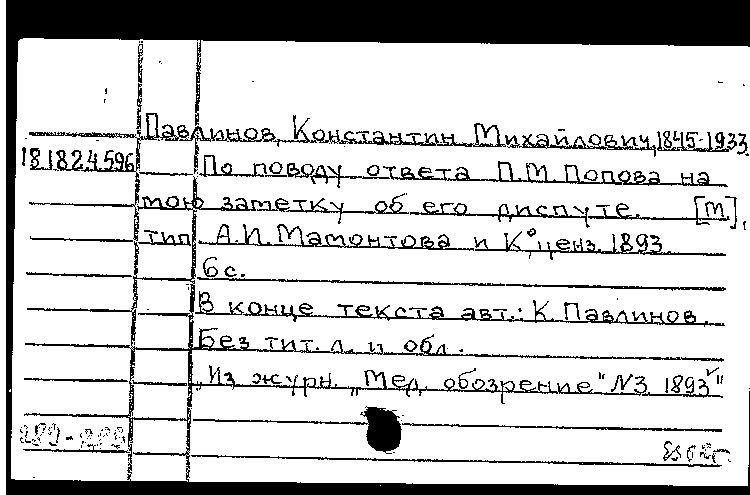 Павлинов, Константин Михайлович, 1845-1933
18 1824596 По поводу ответа П.М. Попова на
мою заметку об его диспуте. [М],
тип. А.И. Мамонтова и К°, ценз. 1893.
6 с.
В конце текста авт.: К. Павлинов.
Без тит. л. и обл.
„Из журн. „Мед. обозрение" №3 1893"